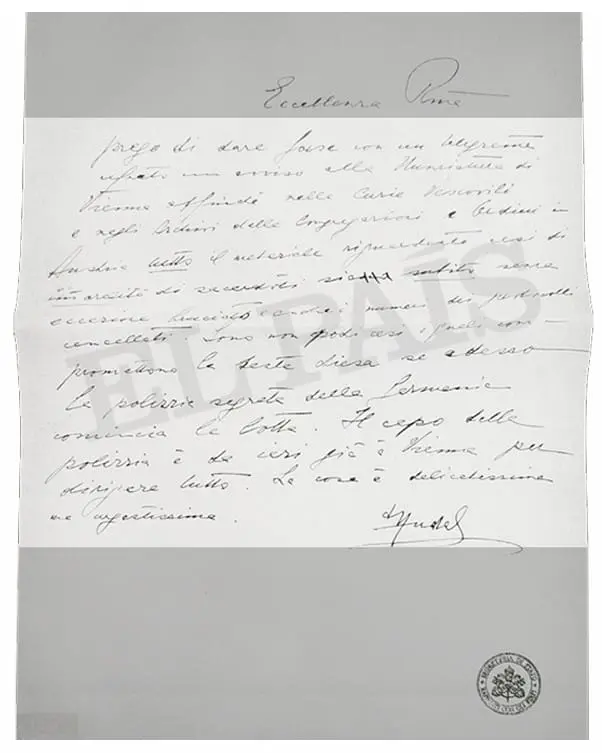 Eccellenza Rma
prego di dare forse con un telegramma
cifrato un avviso alla Nunziatura di
Vienna affinché nelle Curie Vescovili
e negli Archivi delle Congregazioni e Ordini in
Austria tutto il materiale riguardante casi di
immoralità di sacerdoti sia subito senza
eccezione bruciato e anche i numeri dei protocolli
cancellati. Sono non pochi casi i quali com-
promettono la Santa Chiesa se adesso
la polizia segreta della Germania
comincia la lotta. Il capo della
polizzia è da ieri già a Vienna per
dirigere tutto. La cosa è delicatissima
ma urgentissima.
Hudal
EL PAÍS
SEGRETERIA DI STATO